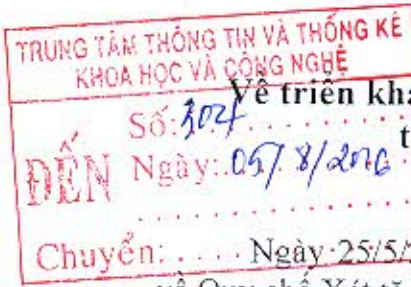 TRUNG TÂM THÔNG TIN VÀ THỐNG KÊ
KHOA HỌC VÀ CÔNG NGHỆ
Về triển kha
Số: 304
t
ĐẾN Ngày: 05/8/2016
Chuyển: Ngày 25/5/
về Quy chế Xét t